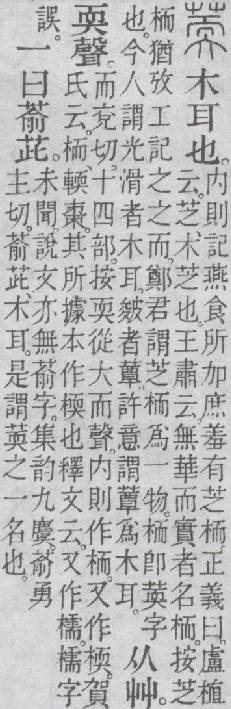 䓴木耳也。内則記燕食所加庶羞有芝栭正義曰盧植
云芝、木芝也。王肅云無華而實者名栭。按芝
栭猶攷工記之之而。鄭君謂芝栭爲一物。栭卽䓴字
也。今人謂光滑者木耳。皺者蕈。許意謂蕈爲木耳。从艸。
耎聲。而兗切。十四部。按耎從大而聲。内則作栭。又作㮕。賀
氏云。栭、輭棗。其所據本作㮕也。釋文云、又作檽。檽字
誤。一曰萮茈。未聞。說文亦無萮字。集韵九麌。萮勇
主切。萮茈、木耳。是謂䓴之一名也。